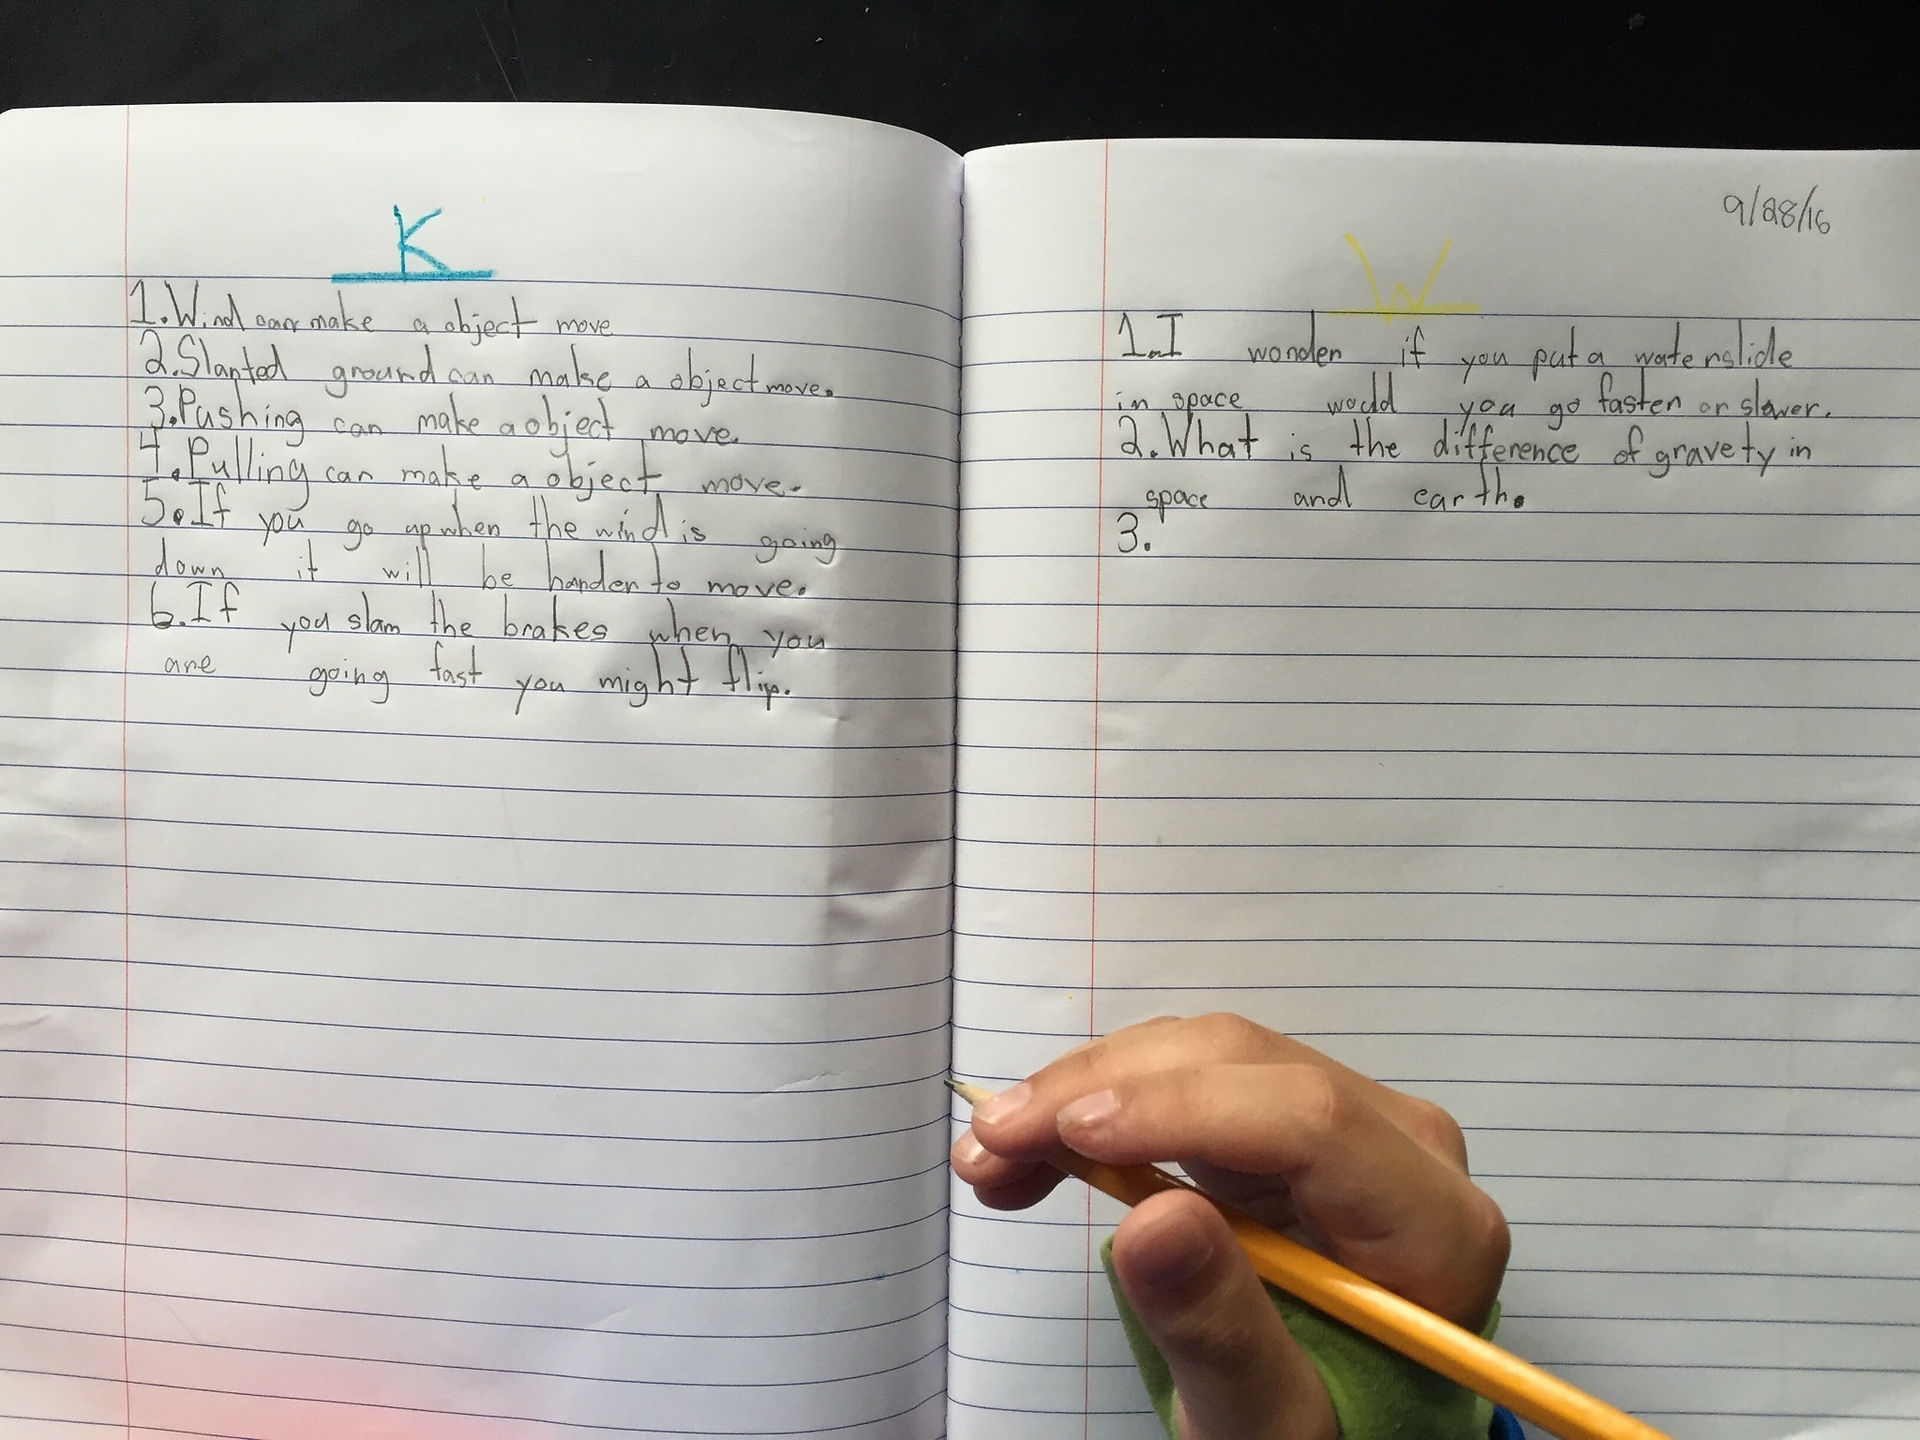 K
1. Wind can make a object move
2. Slanted ground can make a object move.
3. Pushing can make a object move.
4. Pulling can make a object move.
5. If you go up when the wind is going
down it will be harder to move.
6. If you slam the brakes when you
are going fast you might flip.
9/28/16
W
1. I wonder if you put a waterslide
in space would you go faster or slower.
2. What is the difference of gravety in
space and earth.
3.